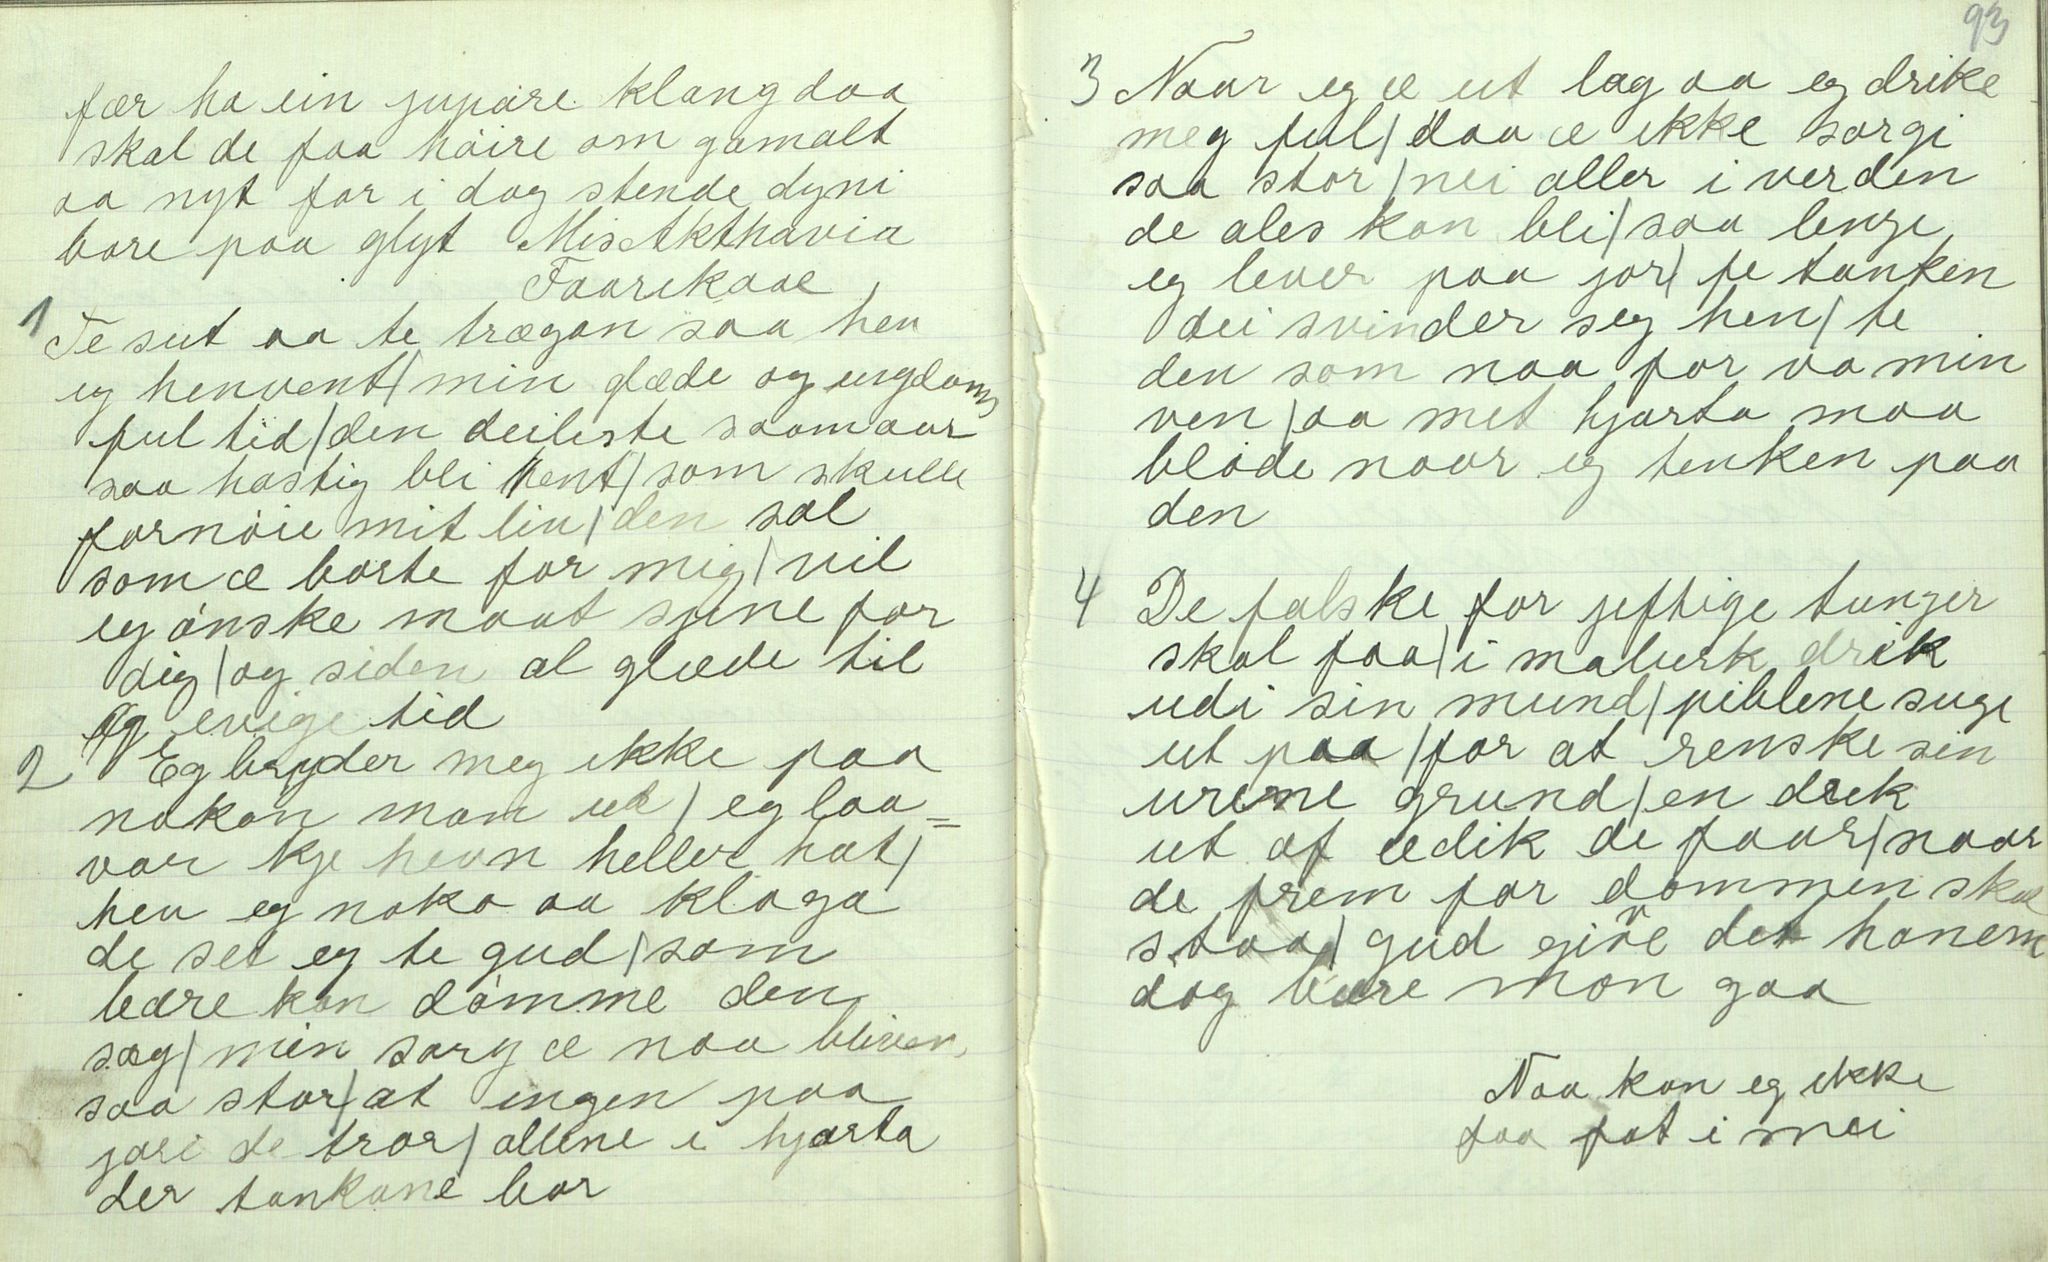 fær ha ein jupare klang daa
skal de faa høire om gamalt
aa nyt for i dag stende dyni
bare paa glyt
Faarikaal
1 Te sut aa te trægan saa hev
eg henvent / min glæde og ungdoms
ful tid / den deileste saamaar
saa hastig bli vent / som skulle
fornøie mit liv / den sol
som æ borte for mig / vil
eg ønske maat sjine for
dig / og siden al glæde til
evige tid
2 Eg bryder meg ikke paa
nokon man ud / eg laa=
var kje hevn heller hat /
hev eg noko aa klaga
de set eg te gud / som
bære kan dømme den
sag / min sorg æ naa bliven
saa stor / at ingen paa
jori de tror / allene i hjarta
der tankane bor
93
3 Naar eg æ ut lag aa eg drike
meg ful / daa æ ikke sorgi
saa stor / nei aller i verden
de ales kan bli / saa lenge
eg lever paa jor / fe tanken
dei svinder seg hen / te
den som naa for va min
ven / aa met hjarta maa
bløde naar eg tenken paa
den
4 De falske for jeftige tunger
skal faa / i malurk drik
udi sin mund / piblene suge
ut paa / for at renske sin
urene grund / en drik
ut af edik de faar / naar
de frem for dommen skal
staa / gud give det honem
dog bære mon gaa
Naa kan eg ikke
faa fat i mei